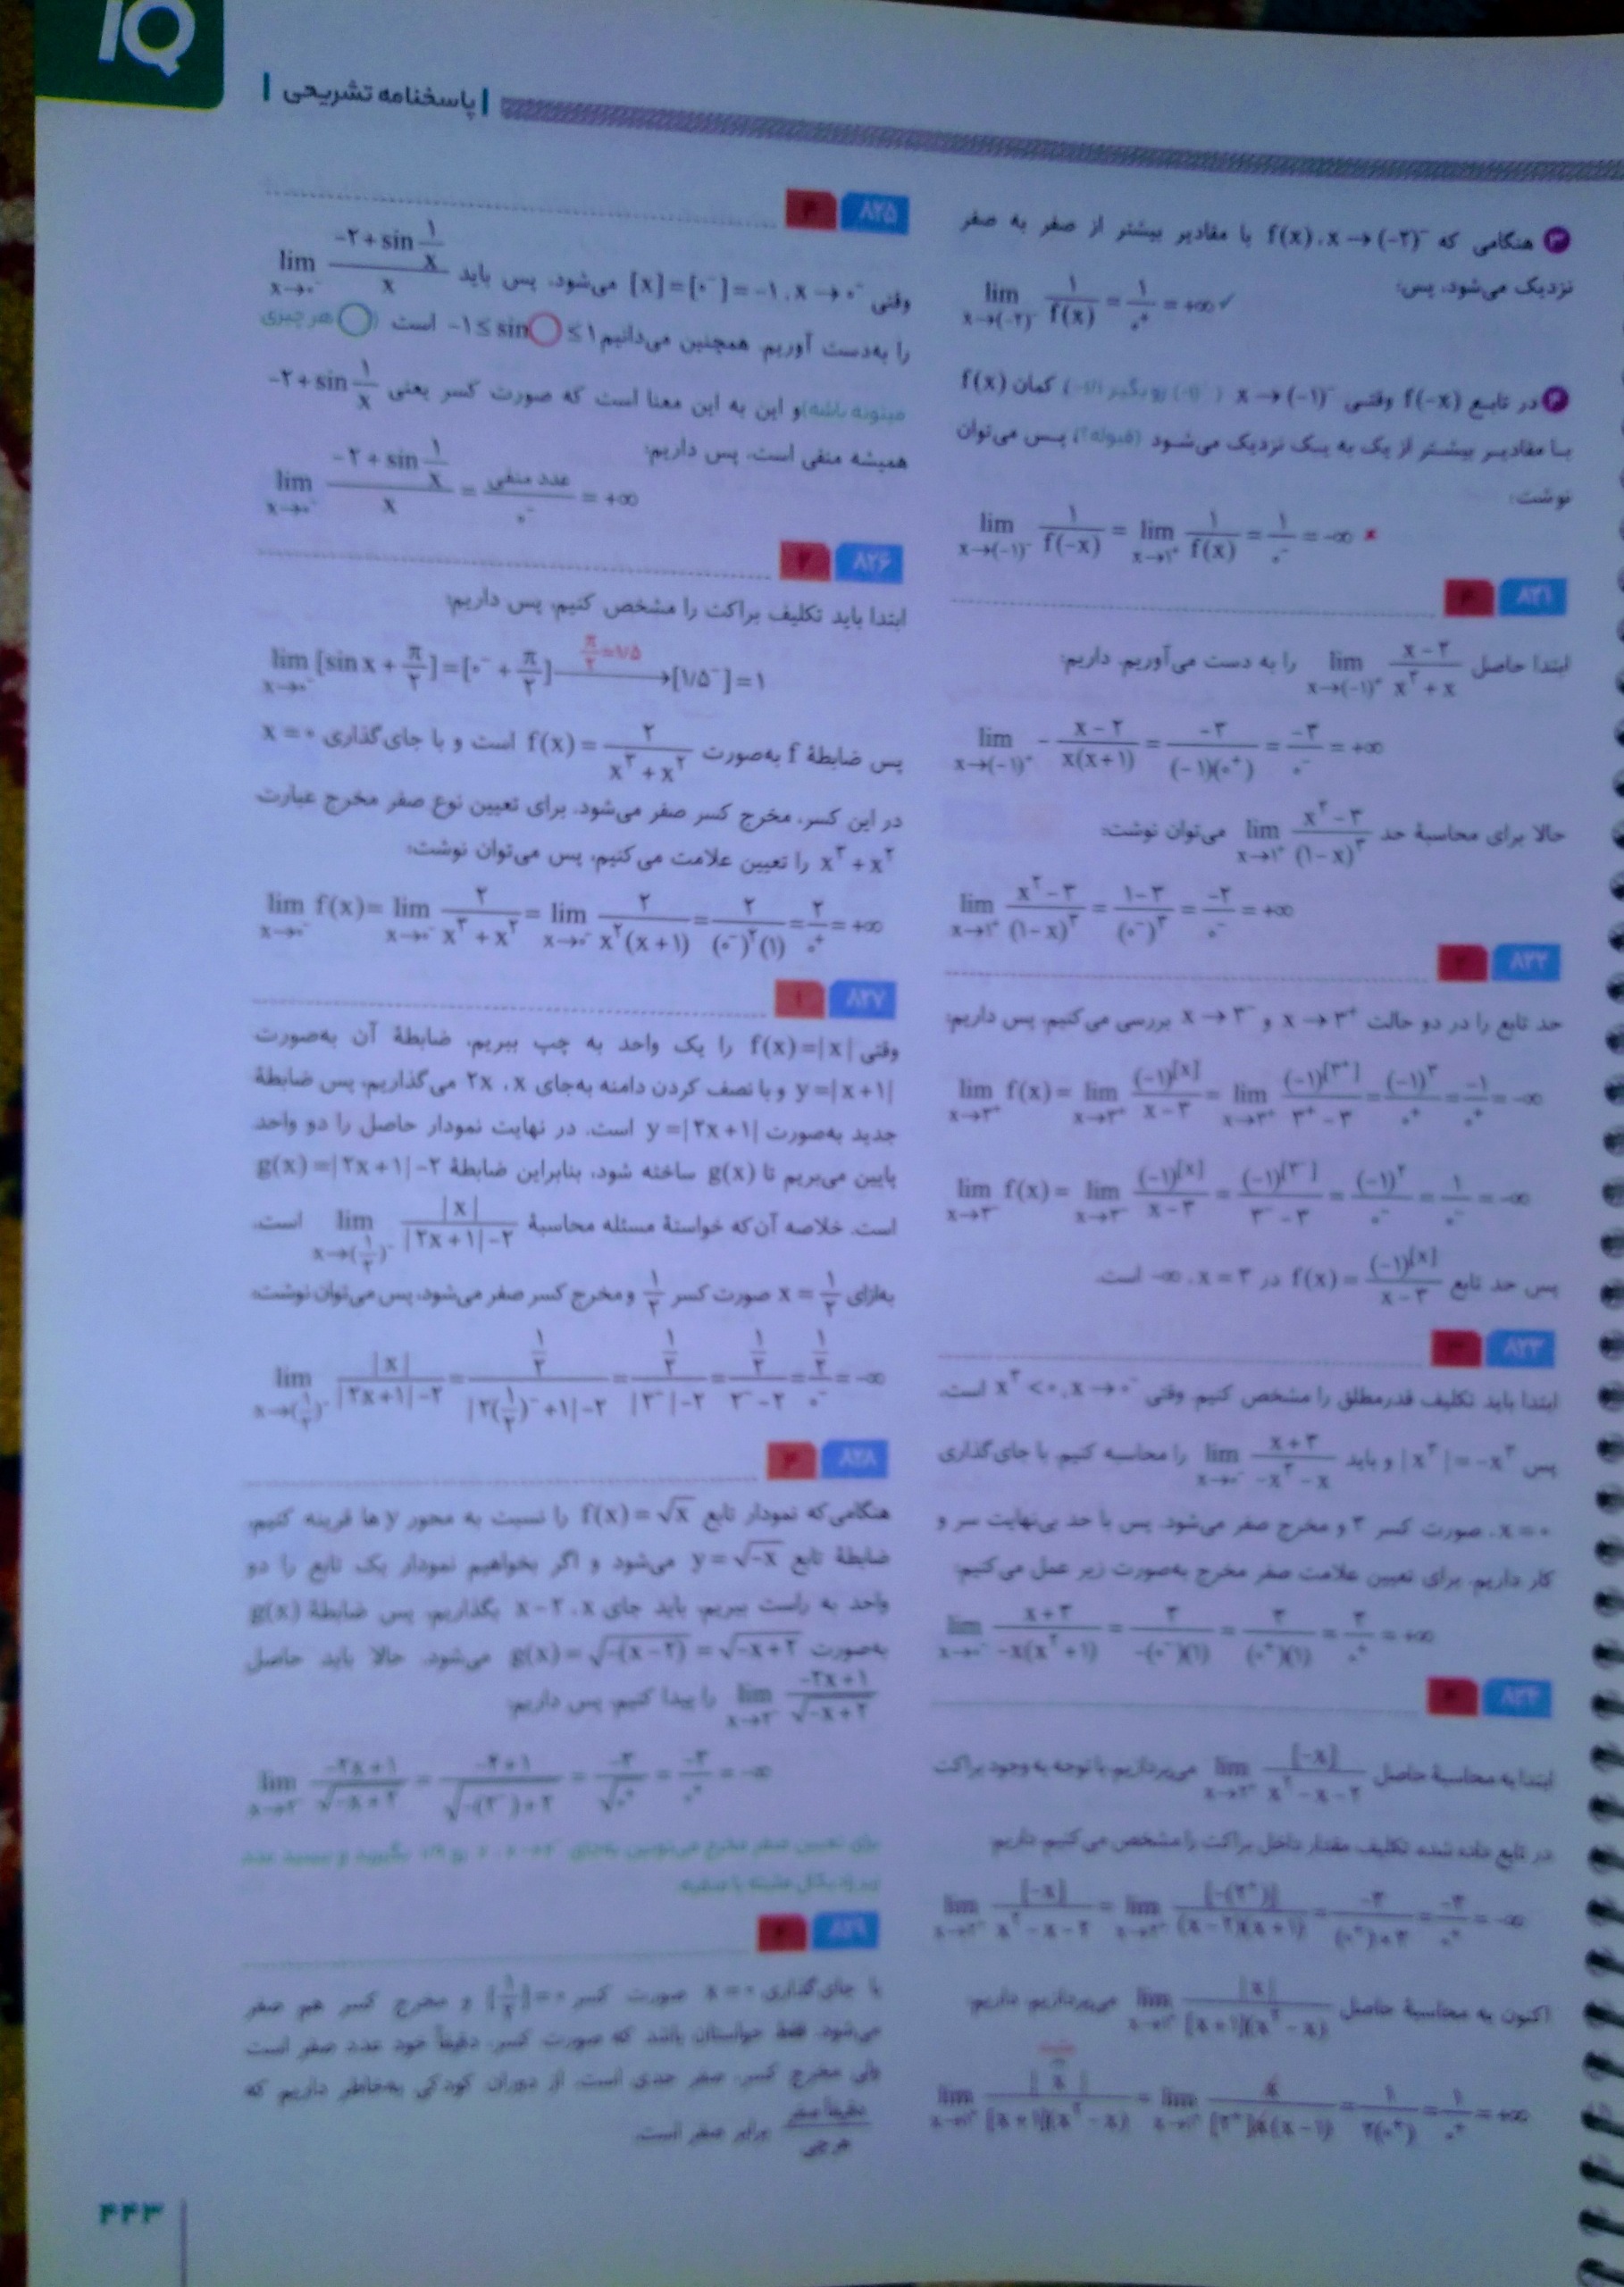 IQ
| پاسخنامه تشریحی |
۳ هنگامی که x→(-۲)⁻، f(x) با مقادیر بیشتر از صفر به صفر
نزدیک می‌شود. پس:
lim x→(-۲)⁻ ۱/f(x) = ۱/۰⁺ = +∞ ✓
در تابع f(-x) وقتی x→(-۱)⁻ کمان f(x)
با مقادیر بیشتر از یک به یک نزدیک می‌شود (قبوله؟)، پس می‌توان
نوشت:
lim x→(-۱)⁻ ۱/f(-x) = lim x→۱⁺ ۱/f(x) = ۱/۰⁻ = -∞ ×
۸۲۱
ابتدا حاصل lim x→(-۱)⁺ را به دست می‌آوریم. داریم:
lim x→(-۱)⁺ (x-۲)/(x(x+۱)) = -۳/((-۱)(۰⁺)) = -۳/۰⁻ = +∞
حالا برای محاسبهٔ حد lim x→۱⁺ (x²-۳)/(۱-x)³ می‌توان نوشت:
lim x→۱⁺ (x²-۳)/(۱-x)³ = (۱-۳)/(۰⁻)³ = -۲/۰⁻ = +∞
۸۲۲
حد تابع را در دو حالت x→۳⁺ و x→۳⁻ بررسی می‌کنیم. پس داریم:
lim x→۳⁺ f(x) = lim x→۳⁺ (-۱)^[x]/(x-۳) = lim x→۳⁺ (-۱)^[۳⁺]/(۳⁺-۳) = (-۱)³/۰⁺ = -۱/۰⁺ = -∞
lim x→۳⁻ f(x) = lim x→۳⁻ (-۱)^[x]/(x-۳) = (-۱)^[۳⁻]/(۳⁻-۳) = (-۱)²/۰⁻ = ۱/۰⁻ = -∞
پس حد تابع f(x) = (-۱)^[x]/(x-۳) در x=۳، -∞ است.
۸۲۳
ابتدا باید تکلیف قدرمطلق را مشخص کنیم. وقتی x→۰⁻، x³<۰ است.
پس |x³| = -x³ و باید lim x→۰⁻ (x+۳)/(-x³-x) را محاسبه کنیم. با جای‌گذاری
x=۰، صورت کسر ۳ و مخرج صفر می‌شود. پس با حد بی‌نهایت سر و
کار داریم. برای تعیین علامت صفر مخرج به‌صورت زیر عمل می‌کنیم:
lim x→۰⁻ (x+۳)/(-x(x²+۱)) = ۳/(-(۰⁻)(۱)) = ۳/((۰⁺)(۱)) = ۳/۰⁺ = +∞
۸۲۴
ابتدا به محاسبهٔ حاصل lim [-x]/(x²-x-۲) می‌پردازیم. با توجه به وجود براکت
در تابع داده شده، تکلیف مقدار داخل براکت را مشخص می‌کنیم. داریم:
lim x→۲⁺ [-x]/(x²-x-۲) = lim x→۲⁺ [-(۲⁺)]/((x-۲)(x+۱)) = -۳/((۰⁺)×۳) = -۳/۰⁺ = -∞
اکنون به محاسبهٔ حاصل lim x→۱⁺ |x|/([x+۱](x²-x)) می‌پردازیم. داریم:
lim x→۱⁺ |x|/([x+۱](x²-x)) = lim x→۱⁺ x/([۲⁺]x(x-۱)) = ۱/(۲(۰⁺)) = ۱/۰⁺ = +∞
۸۲۵
وقتی x→۰⁻، [x]=[۰⁻]=-۱ می‌شود. پس باید lim x→۰⁻ (-۲+sin ۱/x)/x
را به‌دست آوریم. همچنین می‌دانیم -۱≤sin◯≤۱ است (◯ هر چیزی
میتونه باشه) و این به این معنا است که صورت کسر یعنی -۲+sin ۱/x
همیشه منفی است. پس داریم:
lim x→۰⁻ (-۲+sin ۱/x)/x = عدد منفی/۰⁻ = +∞
۸۲۶
ابتدا باید تکلیف براکت را مشخص کنیم. پس داریم:
lim x→۰⁻ [sin x + π/۲] = [۰⁻ + π/۲] π/۲=۱/۵ → [۱/۵⁻] = ۱
پس ضابطهٔ f به‌صورت f(x) = ۲/(x³+x²) است و با جای‌گذاری x=۰
در این کسر، مخرج کسر صفر می‌شود. برای تعیین نوع صفر مخرج عبارت
x³+x² را تعیین علامت می‌کنیم. پس می‌توان نوشت:
lim x→۰⁻ f(x) = lim x→۰⁻ ۲/(x³+x²) = lim x→۰⁻ ۲/(x²(x+۱)) = ۲/((۰⁻)²(۱)) = ۲/۰⁺ = +∞
۸۲۷ ۱
وقتی f(x)=|x| را یک واحد به چپ ببریم، ضابطهٔ آن به‌صورت
y=|x+۱| و با نصف کردن دامنه به‌جای x، ۲x می‌گذاریم. پس ضابطهٔ
جدید به‌صورت y=|۲x+۱| است. در نهایت نمودار حاصل را دو واحد
پایین می‌بریم تا g(x) ساخته شود. بنابراین ضابطهٔ g(x)=|۲x+۱|-۲
است. خلاصه آن‌که خواستهٔ مسئله محاسبهٔ lim x→(۱/۲)⁻ |x|/(|۲x+۱|-۲) است.
به‌ازای x=۱/۲ صورت کسر ۱/۲ و مخرج کسر صفر می‌شود. پس می‌توان نوشت:
lim x→(۱/۲)⁻ |x|/(|۲x+۱|-۲) = (۱/۲)/(|۲(۱/۲)⁻+۱|-۲) = (۱/۲)/(|۲⁻|-۲) = (۱/۲)/(۲⁻-۲) = (۱/۲)/۰⁻ = -∞
۸۲۸
هنگامی‌که نمودار تابع f(x)=√x را نسبت به محور y ها قرینه کنیم،
ضابطهٔ تابع y=√-x می‌شود و اگر بخواهیم نمودار یک تابع را دو
واحد به راست ببریم، باید جای x، x-۲ بگذاریم. پس ضابطهٔ g(x)
به‌صورت g(x)=√-(x-۲)=√-x+۲ می‌شود. حالا باید حاصل
lim x→۲⁻ (-۲x+۱)/√-x+۲ را پیدا کنیم. پس داریم:
lim x→۲⁻ (-۲x+۱)/√-x+۲ = (-۴+۱)/√-(۲⁻)+۲ = -۳/√۰⁺ = -۳/۰⁺ = -∞
برای تعیین صفر مخرج می‌تونین به‌جای بگیرید و ببینید عدد
زیر رادیکال مثبته یا منفیه.
۸۲۹
با جای‌گذاری x=۰ صورت کسر و مخرج کسر هم صفر
می‌شود. فقط حواستان باشد که صورت کسر، دقیقاً خود عدد صفر است
ولی مخرج کسر، صفر حدی است. از دوران کودکی به‌خاطر داریم که
دقیقاً صفر برابر صفر است.
۴۴۳